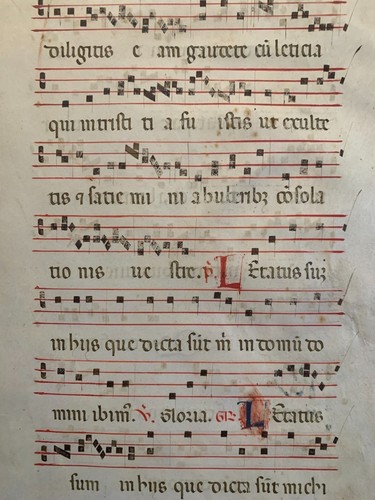 diligitis e am gaudete cū leticia
qui in tristi ti a fu istis ut exulte
tis ⁊ satie mi ni a buberibꝫ cō sola
tio nis ue stre. p̄. L Etatus suꝫ
in hijs que dicta sūt m̄ in domū do
mini ibim⁹. V̄. Gloria. GR. L Etatus
sum in hijs que dicta sūt michi